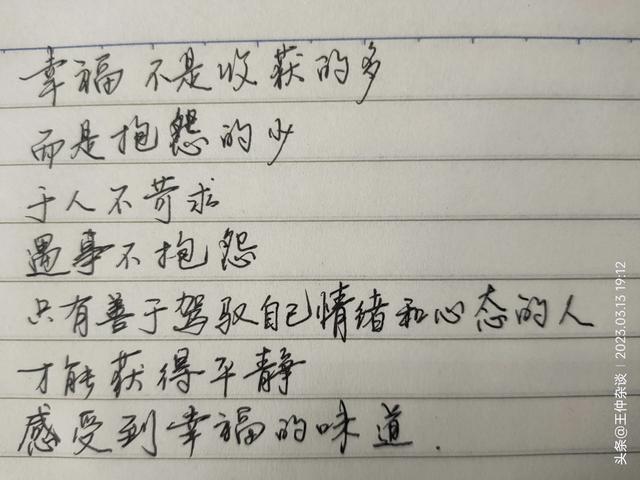 幸福 不是收获的多
而是抱怨的少
于人不苛求
遇事不抱怨
只有善于驾驭自己情绪和心态的人
才能获得平静
感受到幸福的味道.
头条@王仲杂谈 | 2023.03.13 19:12